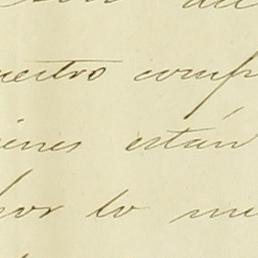 uestro comp
ienes están
por lo me